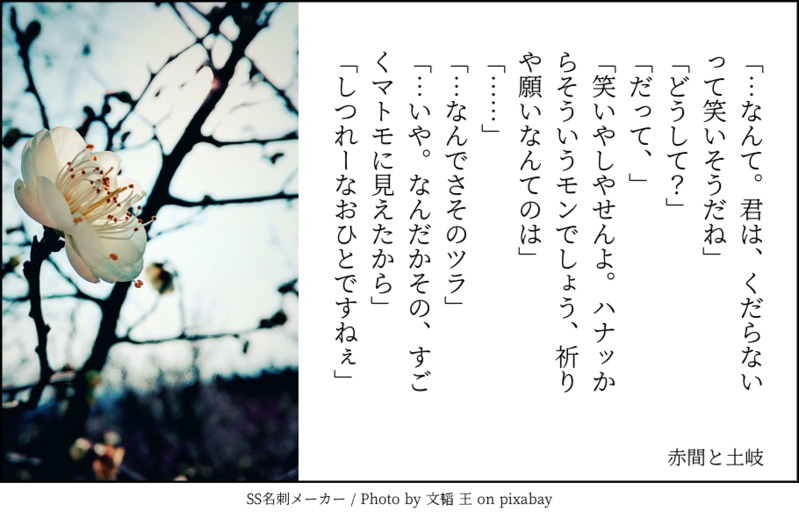 「…なんて。君は、くだらない
って笑いそうだね」
「どうして？」
「だって、」
「笑いやしやせんよ。ハナッか
らそういうモンでしょう、祈り
や願いなんてのは」
「……」
「…なんでさそのツラ」
「…いや。なんだかその、すご
くマトモに見えたから」
「しつれーなおひとですねぇ」
赤間と土岐
SS名刺メーカー / Photo by 文韬 王 on pixabay